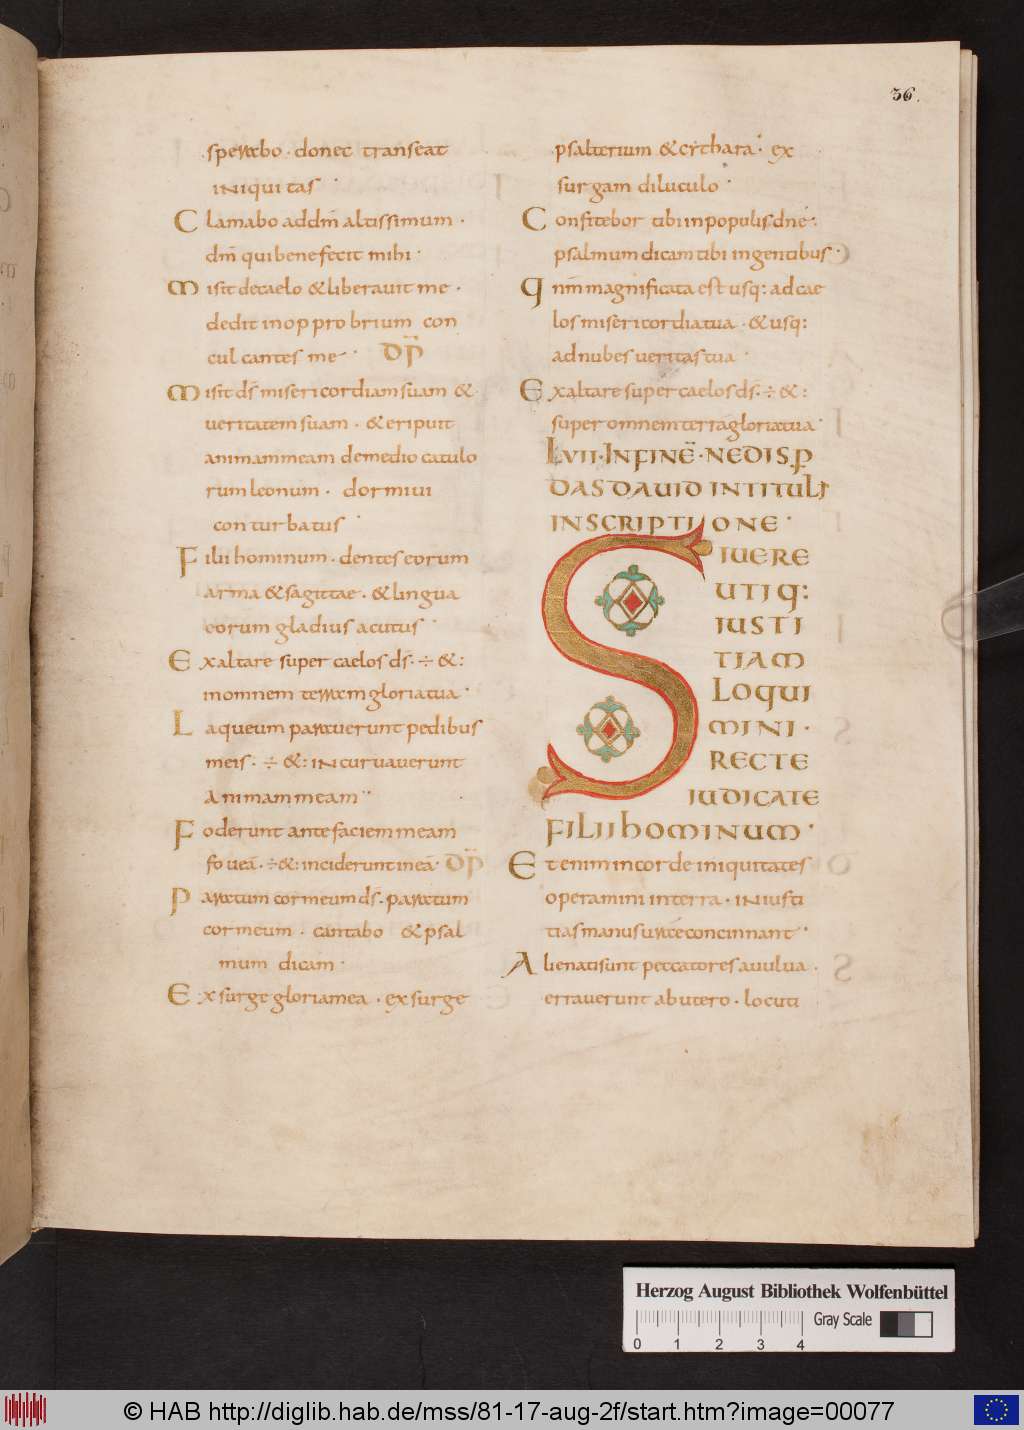 36.
sperabo · donec transeat
iniquitas
Clamabo addm̄ altissimum ·
dm̄ qui benefecit mihi ·
Misit decaelo & liberauit me ·
dedit in oppro brium con
cul cantes me · DP̄
Misit ds̄ misericordiam suam &
ueritatem suam · & eripuit
animammeam demedio catulo
rumleonum · dormiui
conturbatus
Filii hominum · dentes eorum
arma & sagittae · & lingua
eorum gladius acutus
Exaltare super caelos ds̄ · ÷ & :
inomnem terram gloriatua ·
Laqueum parauerunt pedibus
meis · ÷ & : incuruauerunt
Animammeam
Foderunt antefaciem meam
foueā · ÷ & : inciderunt ineā · DP̄
Paratum cormeum ds̄ · paratum
cormeum · cantabo & psal
mum dicam ·
Exsurge gloriamea · exsurge
psalterium & cythara · ex
surgam diluculo ·
Confitebor tibi inpopulis dnē :
psalmum dicam tibi ingentibus ·
Qnm̄ magnificata est usq: ad cae
los misericordiatua · & usq:
adnubes ueritastua
Exaltare super caelos ds̄ · ÷ & :
super omnem terrā gloriatua ·
LVII · IN FINĒ · NE DISP̱
DAS DAUID IN TITULI
INSCRIPTIONE ·
SI UERE
UTIQ:
IUSTI
TIAM
LOQUI
MINI ·
RECTE
IUDICATE
FILII HOMINUM ·
Etenim incorde iniquitates
operamini interra · iniusti
tias manus urāē concinnant
Alienati sunt peccatores auulua ·
errauerunt abutero · locuti
Herzog August Bibliothek Wolfenbüttel
Gray Scale
0 1 2 3 4
© HAB http://diglib.hab.de/mss/81-17-aug-2f/start.htm?image=00077